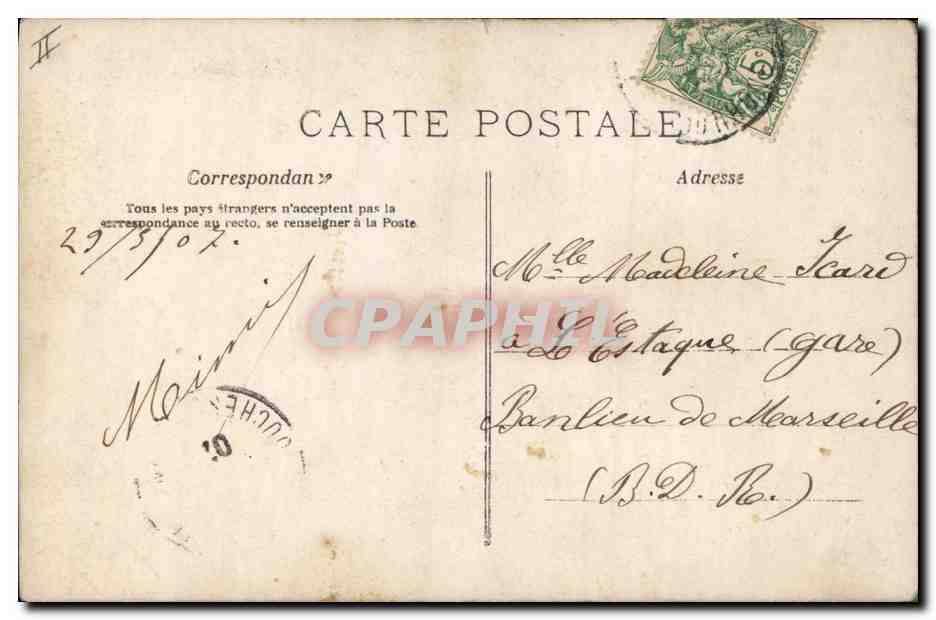 II
5c
POSTES
CARTE POSTALE
Correspondance
Adresse
Tous les pays étrangers n'acceptent pas la
correspondance au recto, se renseigner à la Poste
29/3/07.
Mimi
BOUCHES
10
Mlle Madeleine Icard
à L'Estaque (gare)
Banlieu de Marseille
(B. D. R.)
CPAPHIL